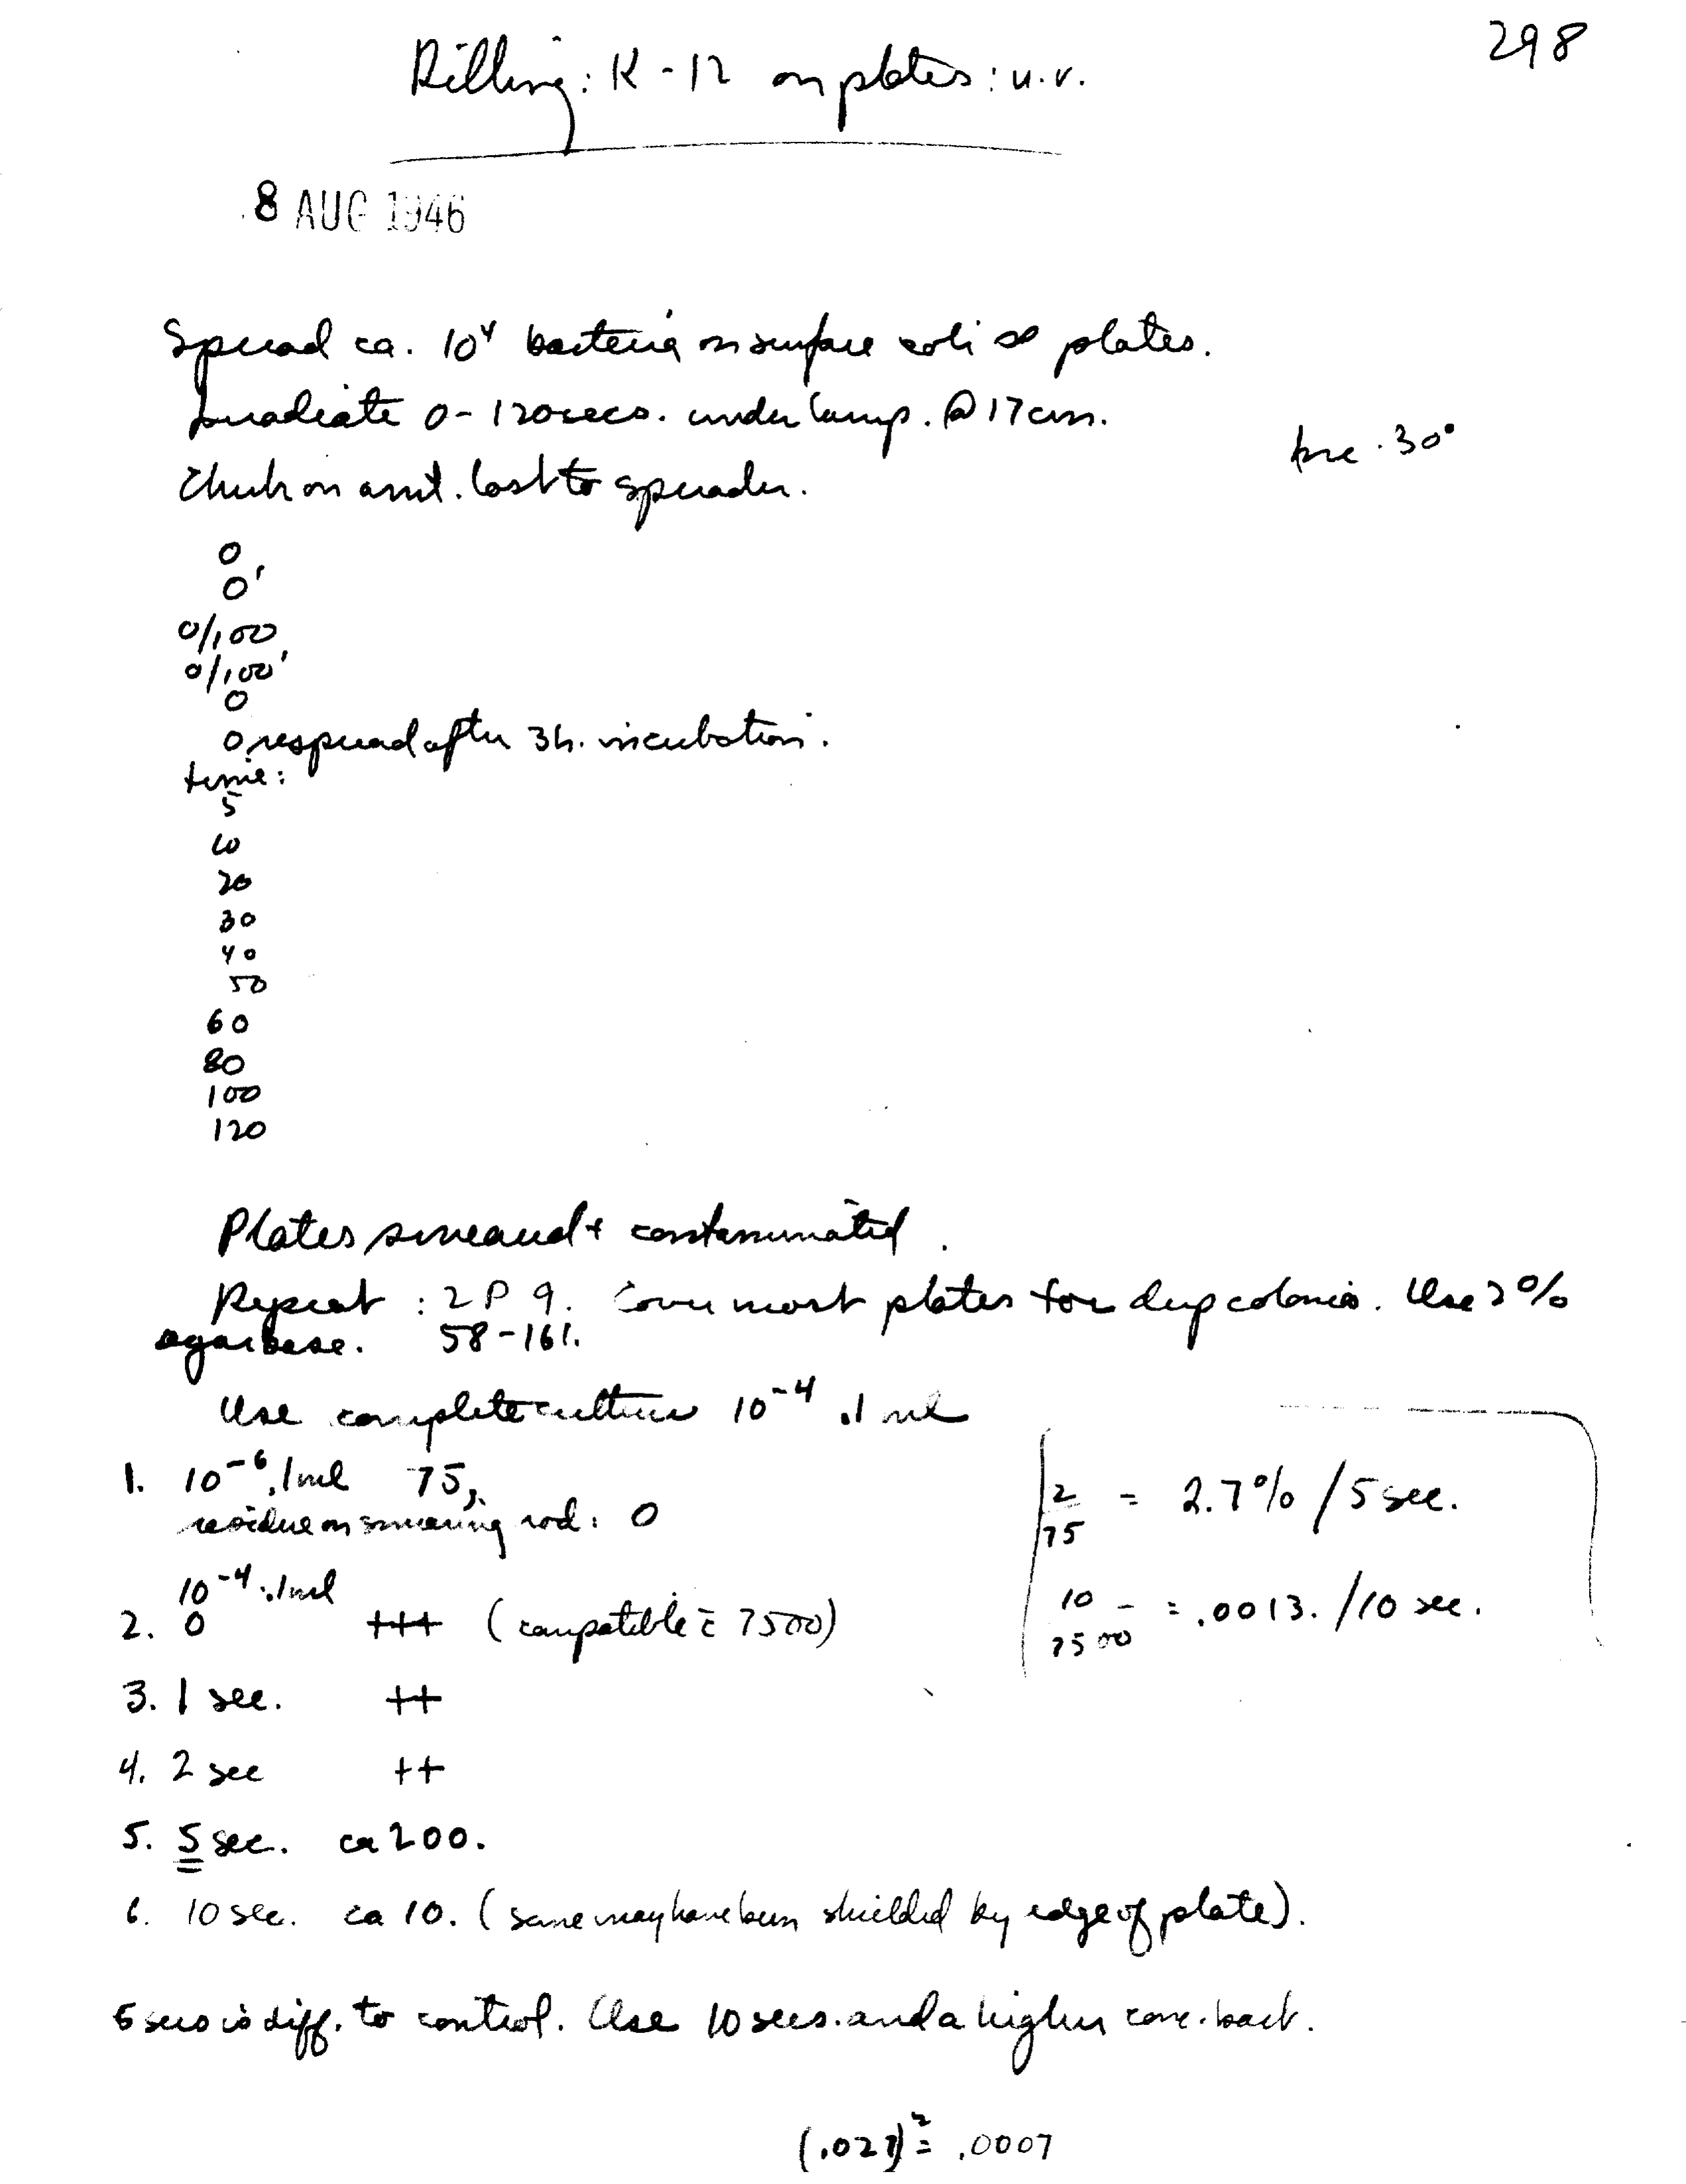 298
Killing: K-12 on plates: u.v.
8 AUG 1946
Spread ca. 10⁴ bacteria on surface coli ∞ plates.
Irradiate 0-120 secs. under lamp. @ 17 cm.
inc. 30°
Check on amt. lost to spreader.
0
0'
0/100
0/100'
0
0 respread after 3h. incubation.
time:
5
10
20
30
40
50
60
80
100
120
Plates smeared + contaminated.
Repeat: 2 P 9. Cover most plates for deep colonies. Use 2%
agar base. 58-161.
Use complete culture 10⁻⁴ .1 ml
1. 10⁻⁶ .1ml 75,
residue on smearing rod: 0
10⁻⁴ .1ml
2. 0 +++ (compatible c̄ 7500)
3. 1 sec. ++
4. 2 sec ++
5. 5 sec. ca 200.
6. 10 sec. ca 10. (some may have been shielded by edge of plate).
2/75 = 2.7% / 5 sec.
10/7500 = .0013. /10 sec.
5 secs is diff. to control. Use 10 secs. and a higher conc. bact.
(.027)² = .0007